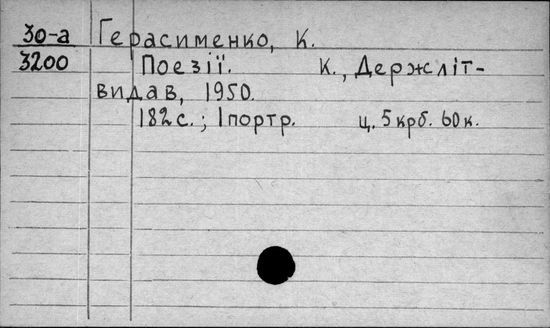 30-а Герасименко, К.
3200 Поезії. К., Держліт-
видав, 1950.
182 с.; 1 портр. ц. 5 крб. 60 к.